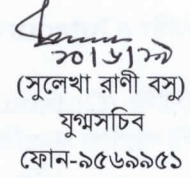 ২০/৬/১৯
(সুলেখা রাণী বসু)
যুগ্মসচিব
ফোন-৯৫৬৯৯৫১